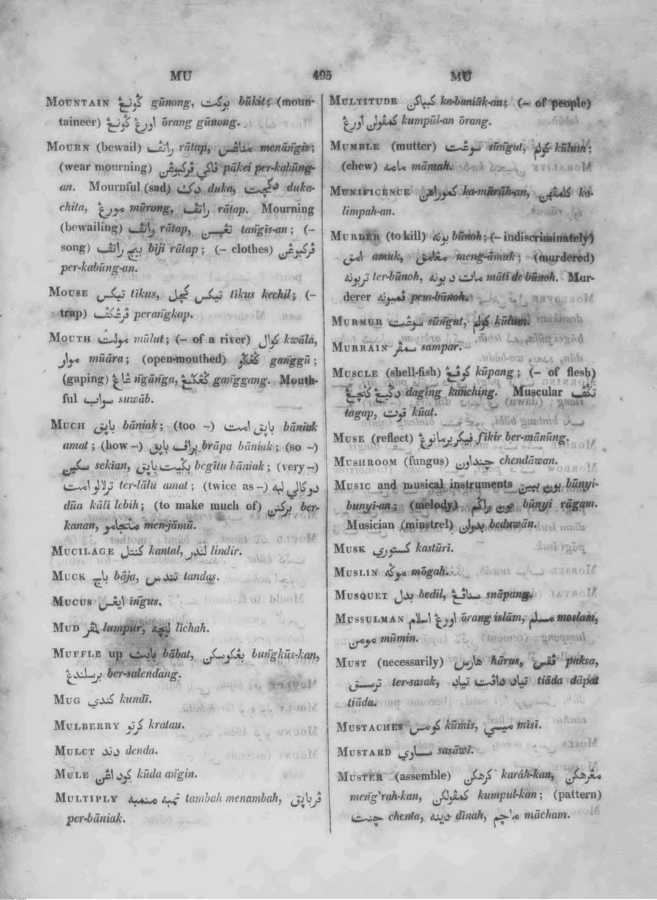 MU 495 MU
MOUNTAIN ڬونڠ gūnong, بوكت būkit; (moun-
taineer) اورڠ ڬونڠ ōrang gūnong.
MOURN (bewail) راتڤ rātap, مناڠس menāngis;
(wear mourning) ڤاكي ڤركبوڠن pākei per-kabūng-
an. Mournful (sad) دك duka, دكچت duka-
chita, مورڠ mūrong, راتڤ rātap. Mourning
(bewailing) راتڤ rātap, تڠيسن tangis-an; (–
song) بيج راتڤ biji rātap; (– clothes) ڤركبوڠن
per-kabūng-an.
MOUSE تيكس tikus, تيكس كچيل tikus kechil; (–
trap) ڤرڠكڤ perangkap.
MOUTH مولت mūlut; (– of a river) كوال kwāla,
موار mūāra; (open-mouthed) ڬڠڬو ganggū;
(gaping) ڠاڠ ngānga, ڬڠڬڠ ganggang. Mouth-
ful سواب suwāb.
MUCH باپق bāniak; (too –) باپق امت bāniak
amat; (how –) براڤ باپق brāpa bāniak; (so –)
سكين sekian, بڬيت باپق begītu bāniak; (very –)
ترلالو امت ter-lālu amat; (twice as –) دوكالي لبه
dūa kāli lebih; (to make much of) بركنن ber-
kanan, منجامو men-jāmū.
MUCILAGE كنتل kantal, لندر lindir.
MUCK باج bāja, تندس tandas.
MUCUS ايڠس ingus.
MUD لمڤر lumpur, ليچه lichah.
MUFFLE up بابت bābat, بڠكوسكن bungkūs-kan,
برسلندڠ ber-salendang.
MUG كندي kundī.
MULBERRY كرتو kratau.
MULCT دند denda.
MULE كود اڠن kūda angin.
MULTIPLY تمبه منمبه tambah menambah, ڤرباپق
per-bāniak.
MULTITUDE كباپاكن ka-baniāk-an; (– of people)
كمڤولن اورڠ kumpūl-an ōrang.
MUMBLE (mutter) سوڠت sūngut, كولم kūlum;
(chew) مامه māmah.
MUNIFICENCE كموراهن ka-mūrāh-an, كلمڤهن ka-
limpah-an.
MURDER (to kill) بونه būnoh; (– indiscriminately)
امق amuk, مڠامق meng-āmuk; (murdered)
تربونه ter-būnoh, مات د بونه māti de būnoh. Mur-
derer ڤمبونه pem-būnoh.
MURMUR سوڠت sūngut, كولم kūlum.
MURRAIN سمڤر sampar.
MUSCLE (shell-fish) كوڤڠ kūpang; (– of flesh)
داڬيڠ كنچڠ dāging kanching. Muscular تڬڤ
tagap, قوت kūat.
MUSE (reflect) فيكر برمانوڠ fikir ber-mānūng.
MUSHROOM (fungus) چنداون chendāwan.
MUSIC and musical instruments بون بيين būnyi-
bunyi-an; (melody) بون راڬم būnyi rāgam.
Musician (minstrel) بدوان bedūwān.
MUSK كستوري kastūrī.
MUSLIN موڬه mōgah.
MUSQUET بدل bedil, سناڤڠ snāpang.
MUSSULMAN اورڠ اسلام ōrang islām, مسلم moslam,
مومن mūmin.
MUST (necessarily) هارس hārus, ڤقس paksa,
ترسسق ter-sasak, تياد داڤت تياد tiāda dāpat
tiāda.
MUSTACHES كومس kūmis, ميسي misi.
MUSTARD ساوي sasāwi.
MUSTER (assemble) كرهكن karāh-kan, مڠرهكن
meng'rah-kan, كمڤولكن kumpul-kan; (pattern)
چنت chenta, دينه dīnah, ماچم mācham.